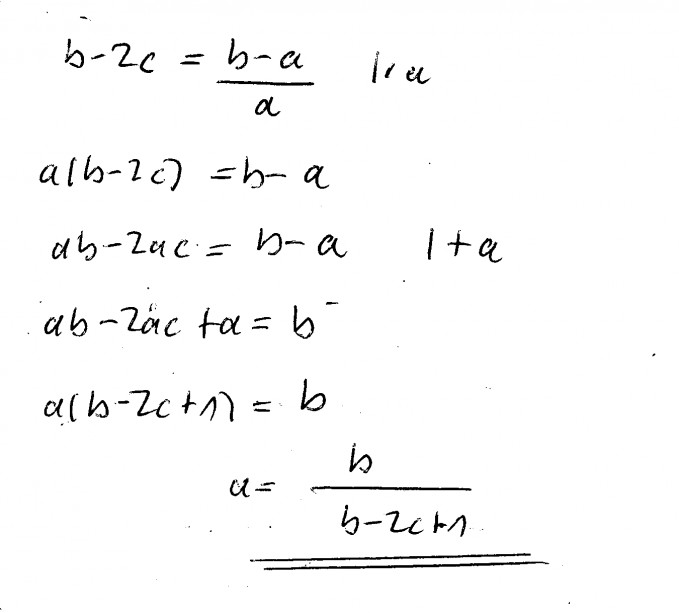 b-2c = (b-a)/a |·a
a(b-2c) = b-a
ab-2ac = b-a |+a
ab-2ac+a = b
a(b-2c+1) = b
a = b/(b-2c+1)